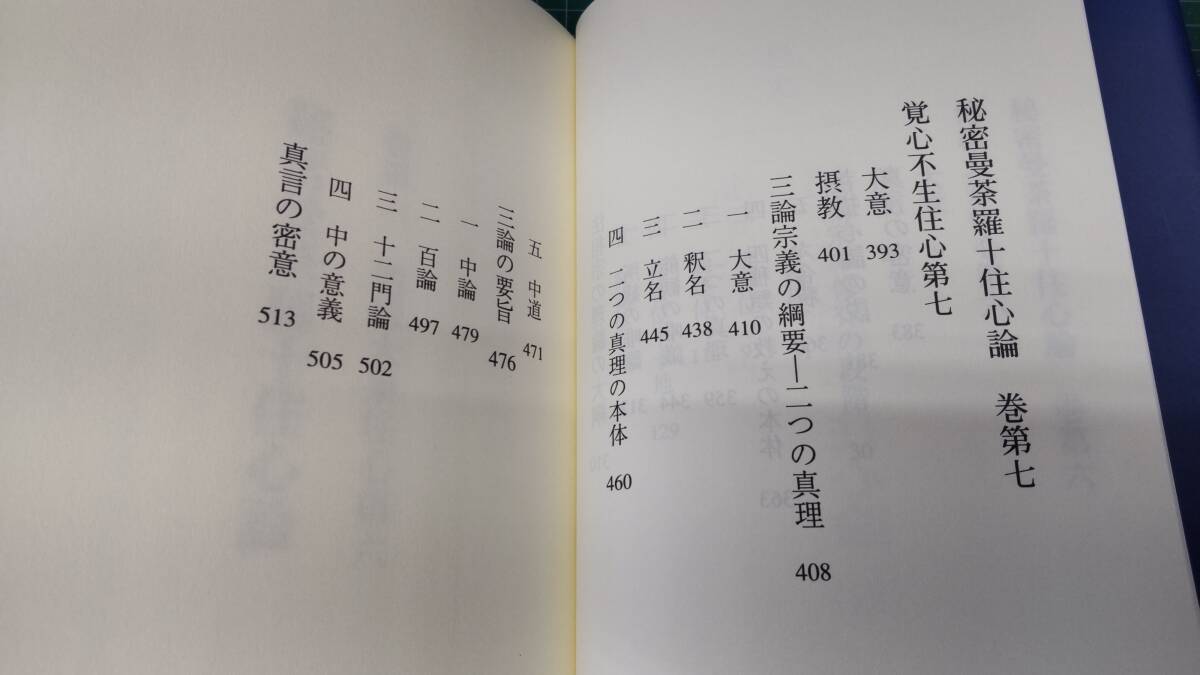 秘密曼荼羅十住心論　巻第七
覚心不生住心第七
大意 393
摂教 401
三論宗義の綱要―二つの真理 408
一　大意 410
二　釈名 438
三　立名 445
四　二つの真理の本体 460
五　中道 471
三論の要旨 476
一　中論 479
二　百論 497
三　十二門論 502
四　中の意義 505
真言の密意 513